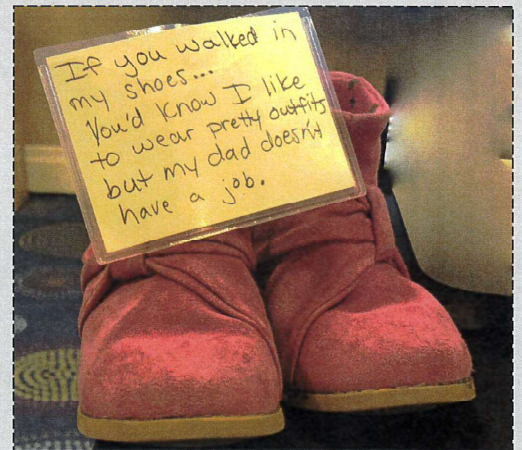 If you walked in
my shoes...
You'd know I like
to wear pretty outfits
but my dad doesn't
have a job.